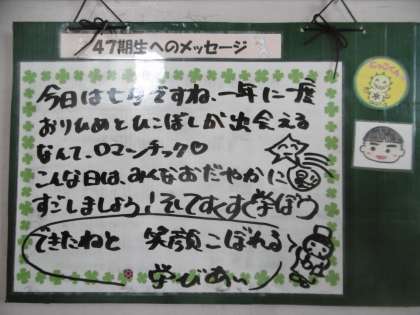 47期生へのメッセージ
今日は七夕ですね、一年に一度
おりひめとひこぼしが出会える
なんて、ロマンチック♡
こんな日は、みんなおだやかに
すごしましょう！そしてすくすく学ぼう
できたねと 笑顔こぼれる
学びあい